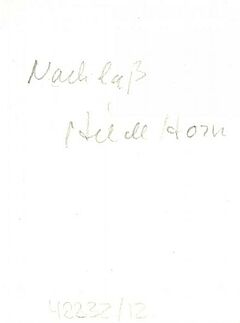 Nachlaß
Heide Horn
42232/12